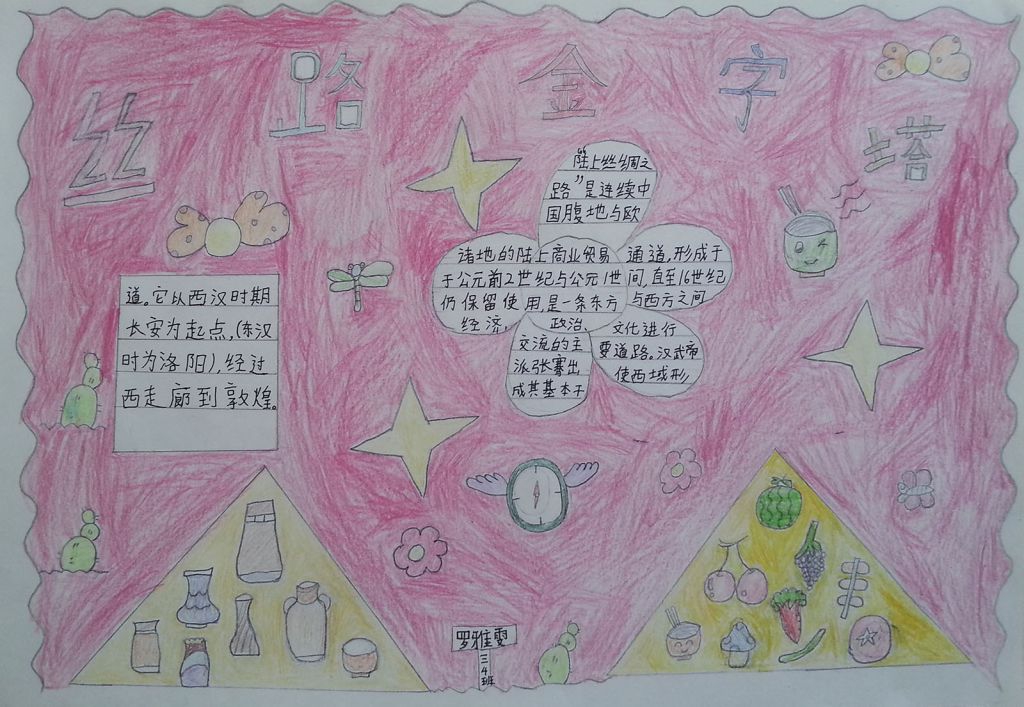 丝路金字塔
陆上丝绸之
路”是连续中
国腹地与欧
诸地的陆上商业贸易 通道,形成于
于公元前2世纪与公元1世间,直至16世纪
仍保留使用,是一条东方 与西方之间
经济, 政治, 文化进行
交流的主 要道路。汉武帝
派张骞出 使西域形
成其基本干
道。它以西汉时期
长安为起点,(东汉
时为洛阳),经过
西走廊到敦煌。
罗雅雯
三
4
班